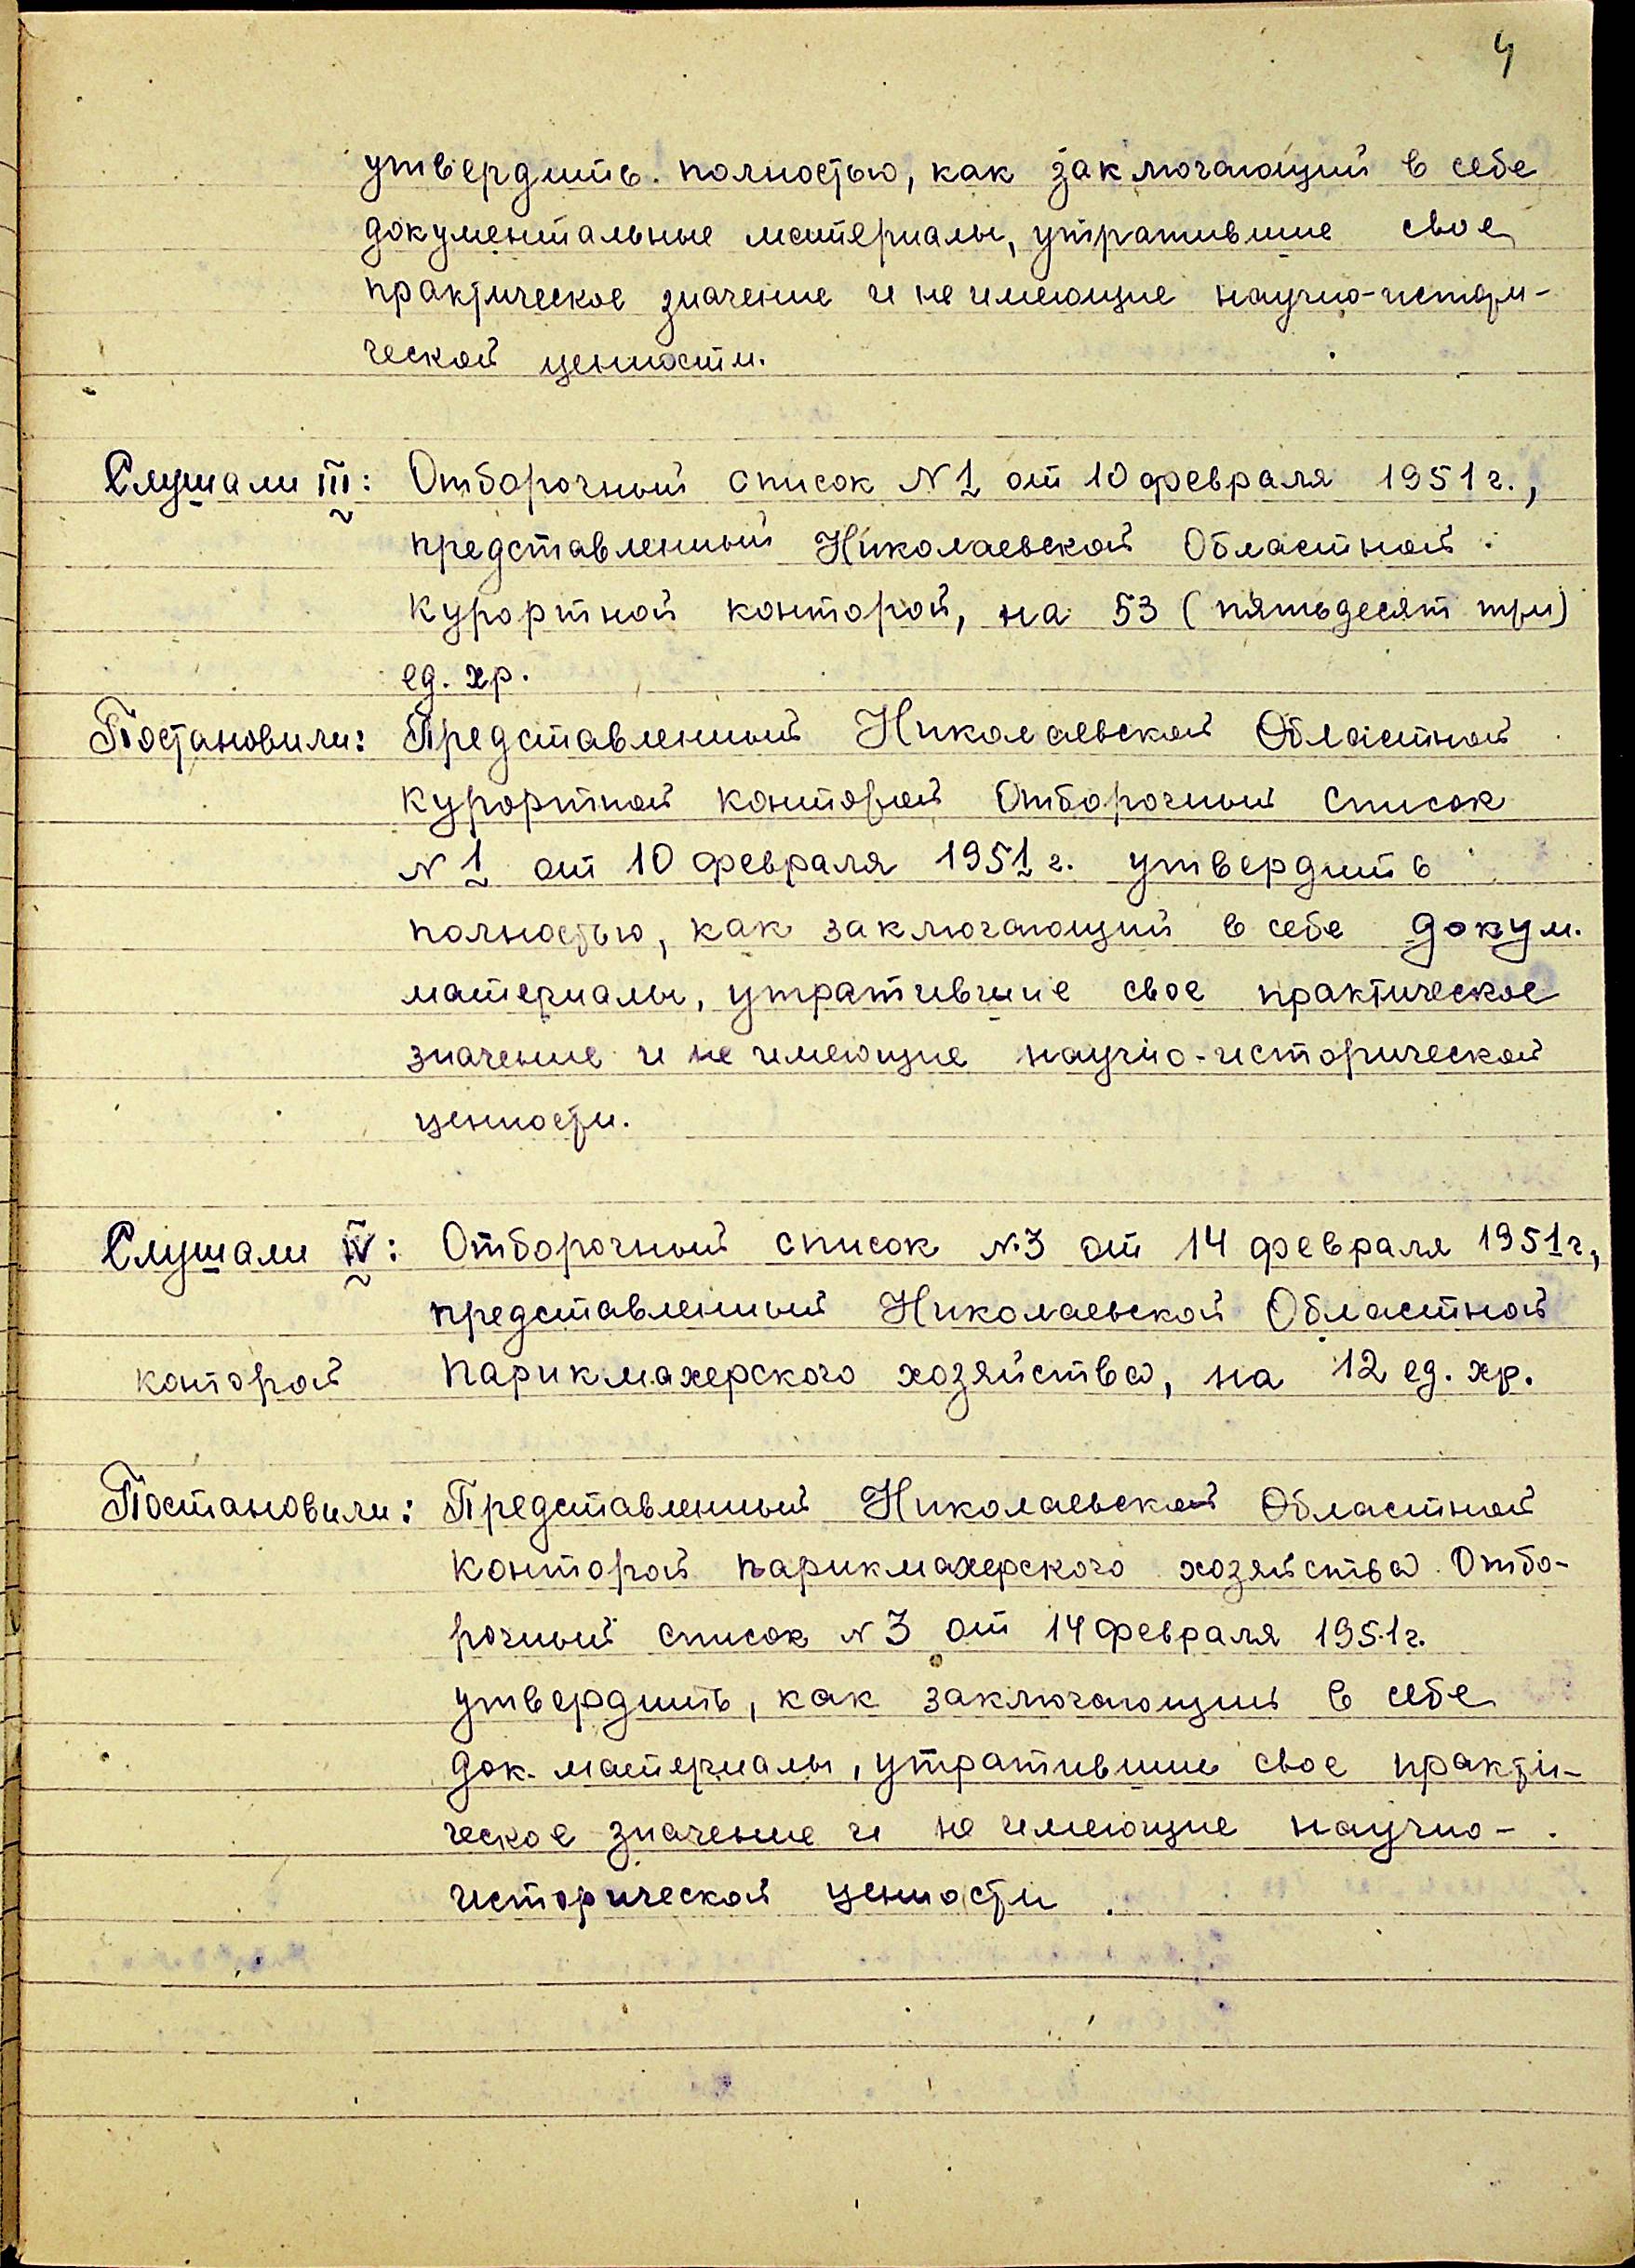 4
утвердить полностью, как заключающий в себе
документальные материалы, утратившие свое
практическое значение и не имеющие научно-истори-
ческой ценности.
Слушали III: Отборочный список N 1 от 10 февраля 1951 г.,
представленный Николаевской Областной
Курортной конторой, на 53 (пятьдесят три)
ед. хр.
Постановили: Представленный Николаевской Областной
Курортной конторой Отборочный список
N 1 от 10 февраля 1951 г. утвердить
полностью, как заключающий в себе докум.
материалы, утратившие свое практическое
значение и не имеющие научно-исторической
ценности.
Слушали IV: Отборочный список N 3 от 14 февраля 1951 г.,
представленный Николаевской Областной
конторой парикмахерского хозяйства, на 12 ед. хр.
Постановили: Представленный Николаевской Областной
Конторой парикмахерского хозяйства Отбо-
рочный список N 3 от 14 февраля 1951 г.
утвердить, как заключающий в себе
док. материалы, утратившие свое практи-
ческое значение и не имеющие научно-
исторической ценности.